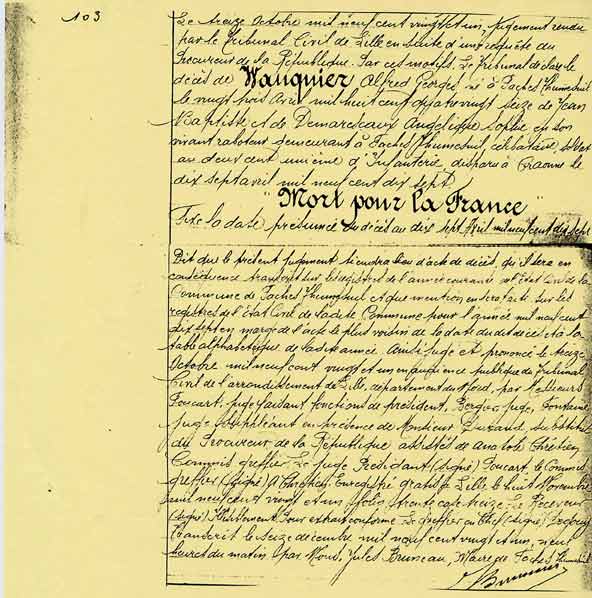 103
Le treize Octobre mil neuf cent vingt et un, jugement rendu
par le Tribunal Civil de Lille en suite d'une requête du
Procureur de la République. Par ces motifs. Le Tribunal déclare le
décès de Wauquier Alfred Georges né à Faches Thumesnil
le vingt trois Avril mil huit cent quatre vingt seize de Jean
Baptiste et de Demarescaux Angélique Sophie en son
vivant raboteur demeurant à Faches Thumesnil, célibataire, soldat
au deux cent unième d'Infanterie disparu à Craonne le
dix sept avril mil neuf cent dix sept.
"Mort pour la France"
Fixe la date présumée du décès au dix sept Avril mil neuf cent dix sept
Dit que le présent jugement tiendra lieu d'acte de décès, qu'il sera en
conséquence transcrit sur les registres de l'année courante de l'Etat Civil de la
Commune de Faches Thumesnil et que mention en sera faite sur les
registres de l'Etat Civil de la dite Commune pour l'année mil neuf cent
dix sept en marge de l'acte le plus voisin de la date du dit décès et à la
table alphabétique de la dite année. Ainsi jugé et prononcé le treize
Octobre mil neuf cent vingt et un en audience publique du Tribunal
Civil de l'arrondissement de Lille, département du Nord, par Messieurs
Foucart, juge faisant fonctions de président, Berger, juge, Fontaine
juge suppléant en présence de Monsieur Durand substitut
du Procureur de la République assistés de Anatole Chrétien
Commis greffier. Le juge Président (signé) Foucart. le Commis
greffier (signé) A Chrétien. Enregistré gratis à Lille le huit Novembre
mil neuf cent vingt et un folio trente case seize. Le Receveur
(signé) Pour extrait conforme. Le greffier en Chef (signé)
Transcrit le seize décembre mil neuf cent vingt et un, neuf
heures du matin, par Nous, Jules Bruneau, Maire de Faches Thumesnil
JBruneau